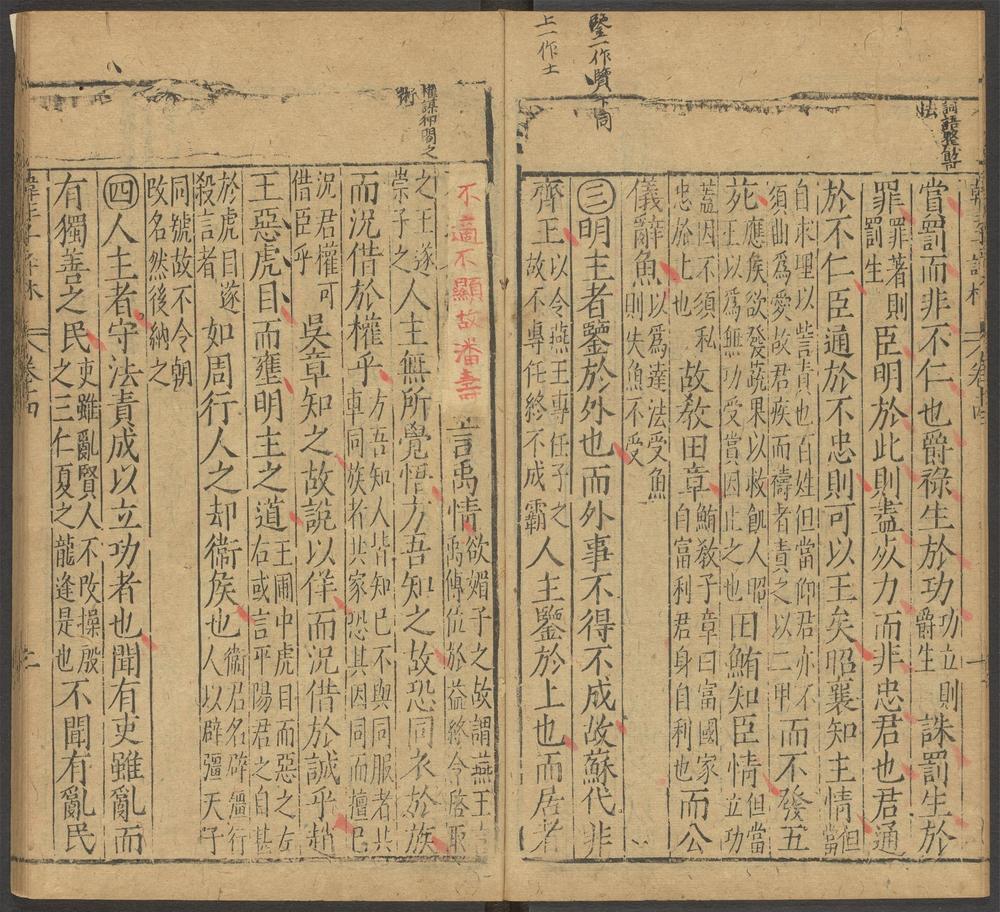 鑒一作賢下同
上一作士
詞語整齊
法
賞罰而非不仁也爵祿生於功功立則爵生誅罰生於
罪罪著則罰生臣明於此則盡死力而非忠君也君通
於不仁臣通於不忠則可以王矣昭襄知主情但當
自求理以訾責也百姓但當仰君亦不須曲為愛故君疾而禱者責之以二甲而不發五
苑應侯欲發蔬果以救飢人昭王以為無功受賞因止之也田鮪知臣情但當立功
蓋因不須私忠於上也故教田章鮪教子章曰富國家自富利君身自利也而公
儀辭魚以為違法受魚則失魚不受
㊂明主者鑒於外也而外事不得不成故蘇代非
齊王以令燕王專任子之故不專任終不成霸人主鑒於上也而居者
權謀神間之
術
不適不顯故潘壽言禹情欲媚子之故謂燕王禹傳位於益終令啓取
之王遂崇子之人主無所覺悟方吾知之故恐同衣於族
而況借於權乎方吾知人皆知已不與同服者共車同族者共家恐其因同而擅已
況君權可借臣乎吳章知之故說以佯而況借於誠乎趙
王惡虎目而壅明主之道王圃中虎目而惡之左右或言平陽君之自甚
於虎目遂殺言者如周行人之却衞侯也衞君名辟疆行人以辟疆天子
同號故不令朝改名然後納之
㊃人主者守法責成以立功者也聞有吏雖亂而
有獨善之民吏雖亂賢人不改操殷之三仁夏之龍逢是也不聞有亂民